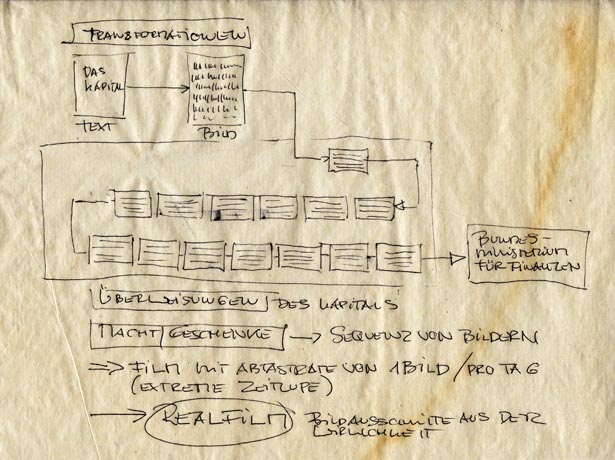 TRANSFORMATIONEN
DAS
KAPITAL
TEXT
BILD
BUNDES-
MINISTERIUM
FÜR FINANZEN
ÜBERWEISUNGEN DES KAPITALS
MACHT/GESCHENKE → SEQUENZ VON BILDERN
⇒ FILM MIT ABTASTRATE VON 1BILD/PRO TAG
(EXTREME ZEITLUPE)
→ REALFILM BILDAUSSCHNITTE AUS DER
WIRKLICHKEIT